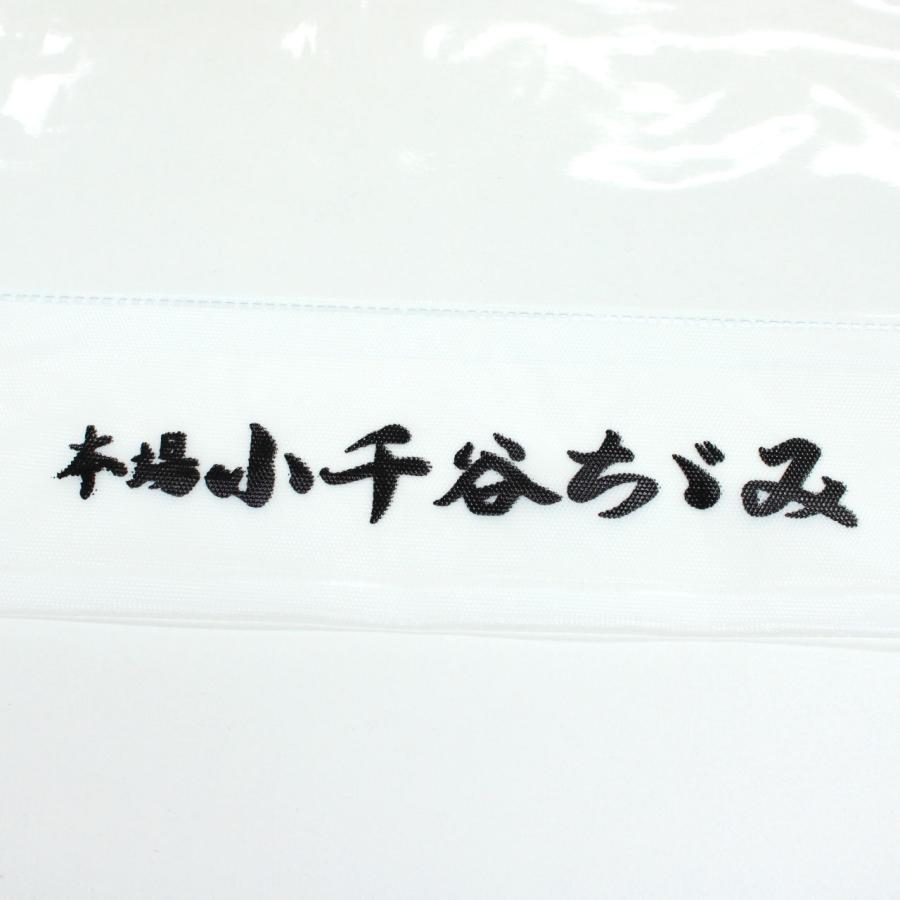 本場小千谷ちゞみ